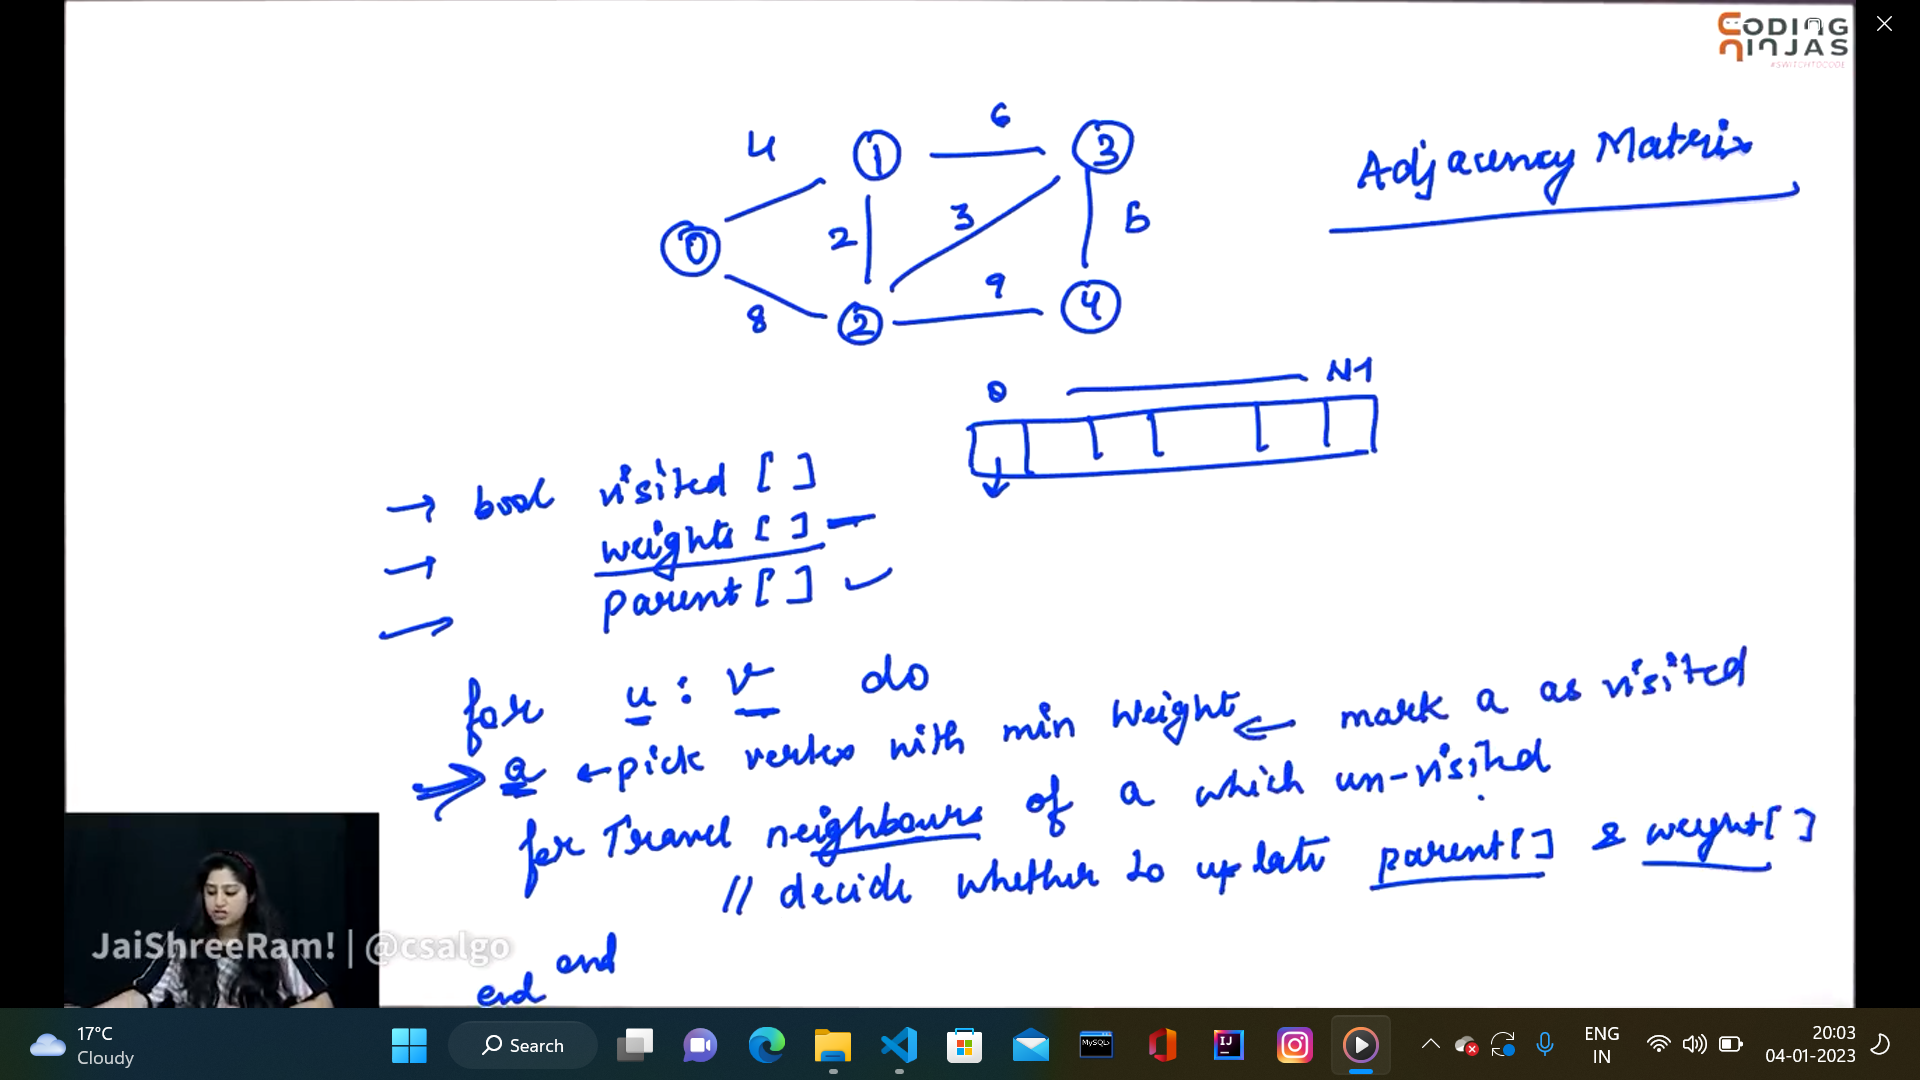 CODING
NINJAS
#SWITCHTOCODE
Adjacency Matrix
4
6
0
1
3
2
3
5
8
9
2
4
0
N-1
→ bool visited [ ]
→ weights [ ]
parent [ ] ✓
for u : v do
a ← pick vertex with min weight ← mark a as visited
for Travel neighbours of a which un-visited
// decide whether to update parent[ ] & weight[ ]
end
end
JaiShreeRam! | @csalgo
17°C
Cloudy
Search
MySQL
IJ
ENG
IN
20:03
04-01-2023